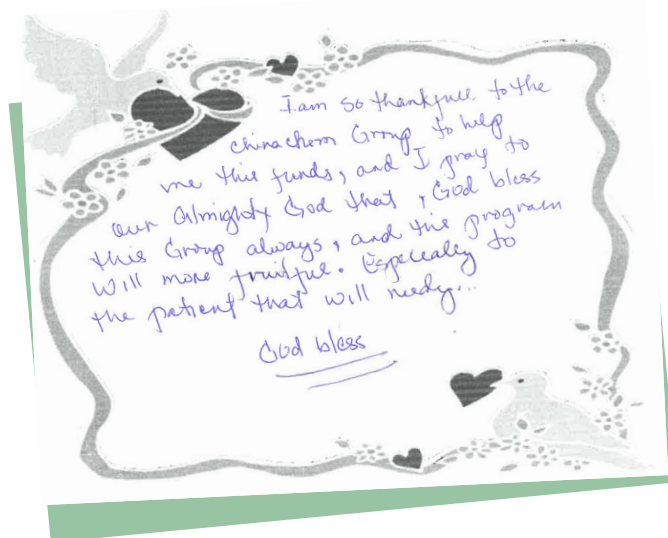 I am so thankfull to the
chinachem Group to help
me this funds, and I pray to
our Almighty God that, God bless
this Group always, and the program
will more fruitful. Especially to
the patient that will needy...
God bless